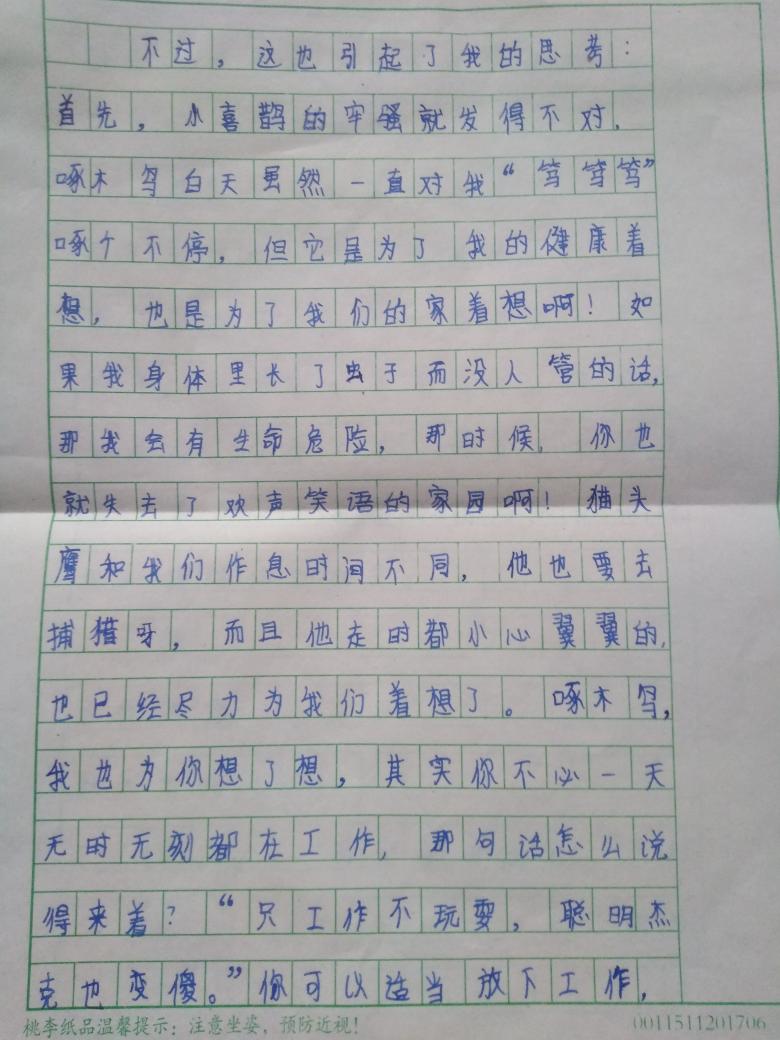 不过，这也引起了我的思考：
首先，小喜鹊的牢骚就发得不对，
啄木鸟白天虽然一直对我“笃笃笃”
啄个不停，但它是为了我的健康着
想，也是为了我们的家着想啊！如
果我身体里长了虫子而没人管的话，
那我会有生命危险，那时候，你也
就失去了欢声笑语的家园啊！猫头
鹰和我们作息时间不同，他也要去
捕猎呀，而且他走时都小心翼翼的，
也已经尽力为我们着想了。啄木鸟，
我也为你想了想，其实你不必一天
无时无刻都在工作，那句话怎么说
得来着？“只工作不玩耍，聪明杰
克也变傻。”你可以适当放下工作，
桃李纸品温馨提示：注意坐姿，预防近视！ 0011511201706